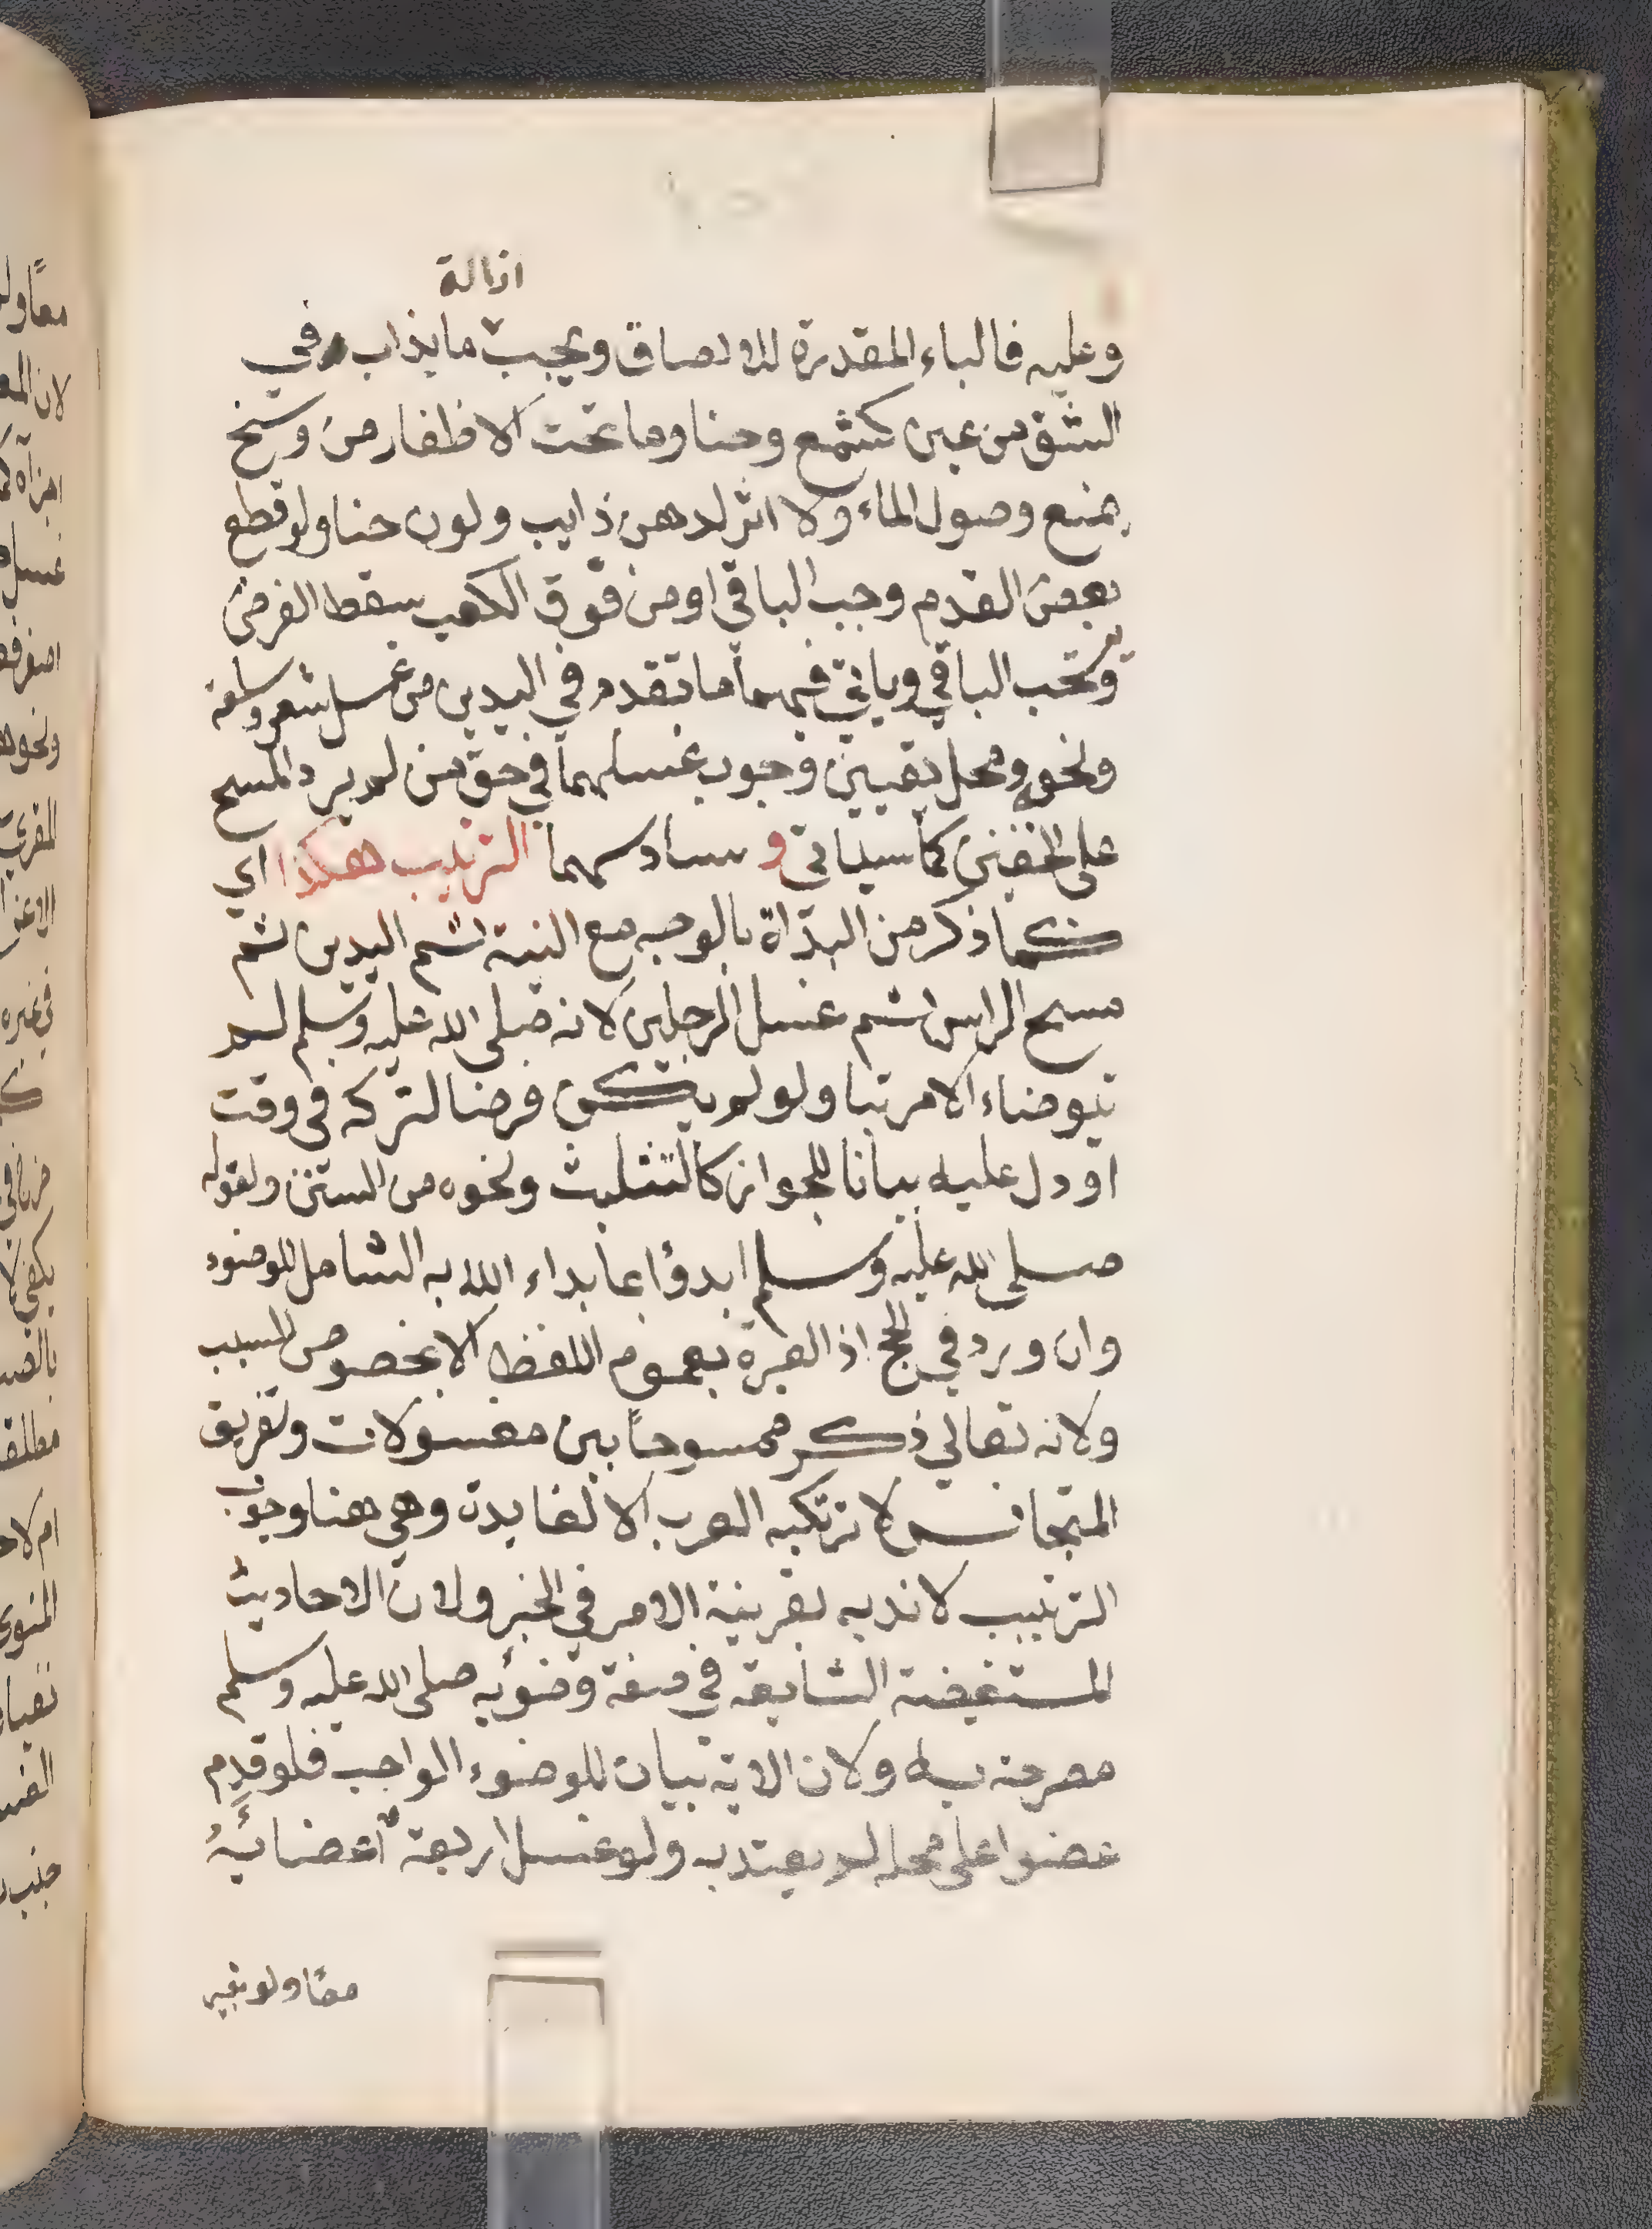 ازالة
وعليه فالباء المقدرة للالصاق ويجب ما يذاب في
الشق من عين كشمع وحنا وما تحت الاظفار من وسخ
يمنع وصول الماء ولا اثر لدهن ذايب ولون حنا ولو قطع
بعض القدم وجب الباقي او من فوق الكعب سقط الفرض
ويستحب الباقي وياتي فيهما ما تقدم في اليدين من غسل شعر وسلعة
ونحوه ومحل تعيين وجوب غسلهما في حق من لم يرد المسح
على الخفين كما سياتي و سادسهما الترتيب هكذا اي
كما ذكر من البداة بالوجه مع النية ثم اليدين ثم
مسح الراس ثم غسل الرجلين لانه صلى الله عليه وسلم لم
يتوضاء الا مرتبا ولو لم يكن فرضا لتركه في وقت
او دل عليه بيانا للجواز كالتثليث ونحوه من السنن ولقوله
صلى الله عليه وسلم ابدؤا بما بداء الله به الشامل للوضوء
وان ورد في الحج اذ العبرة بعموم اللفظ لا بخصوص السبب
ولانه تعالي ذكر ممسوحا بين مغسولات وتفريق
المتجانس لا ترتكبه العرب الا لفايدة وهي هنا وجوب
الترتيب لا ندبه بقرينة الامر في الخبر ولان الاحاديث
المستفيضة الشايعة في صفة وضوئه صلى الله عليه وسلم
مصرحة به ولان الاية بيان للوضوء الواجب فلو قدم
عضوا على محله لم يعتد به ولو غسل اربعة اعضائه
معا ولو بغير